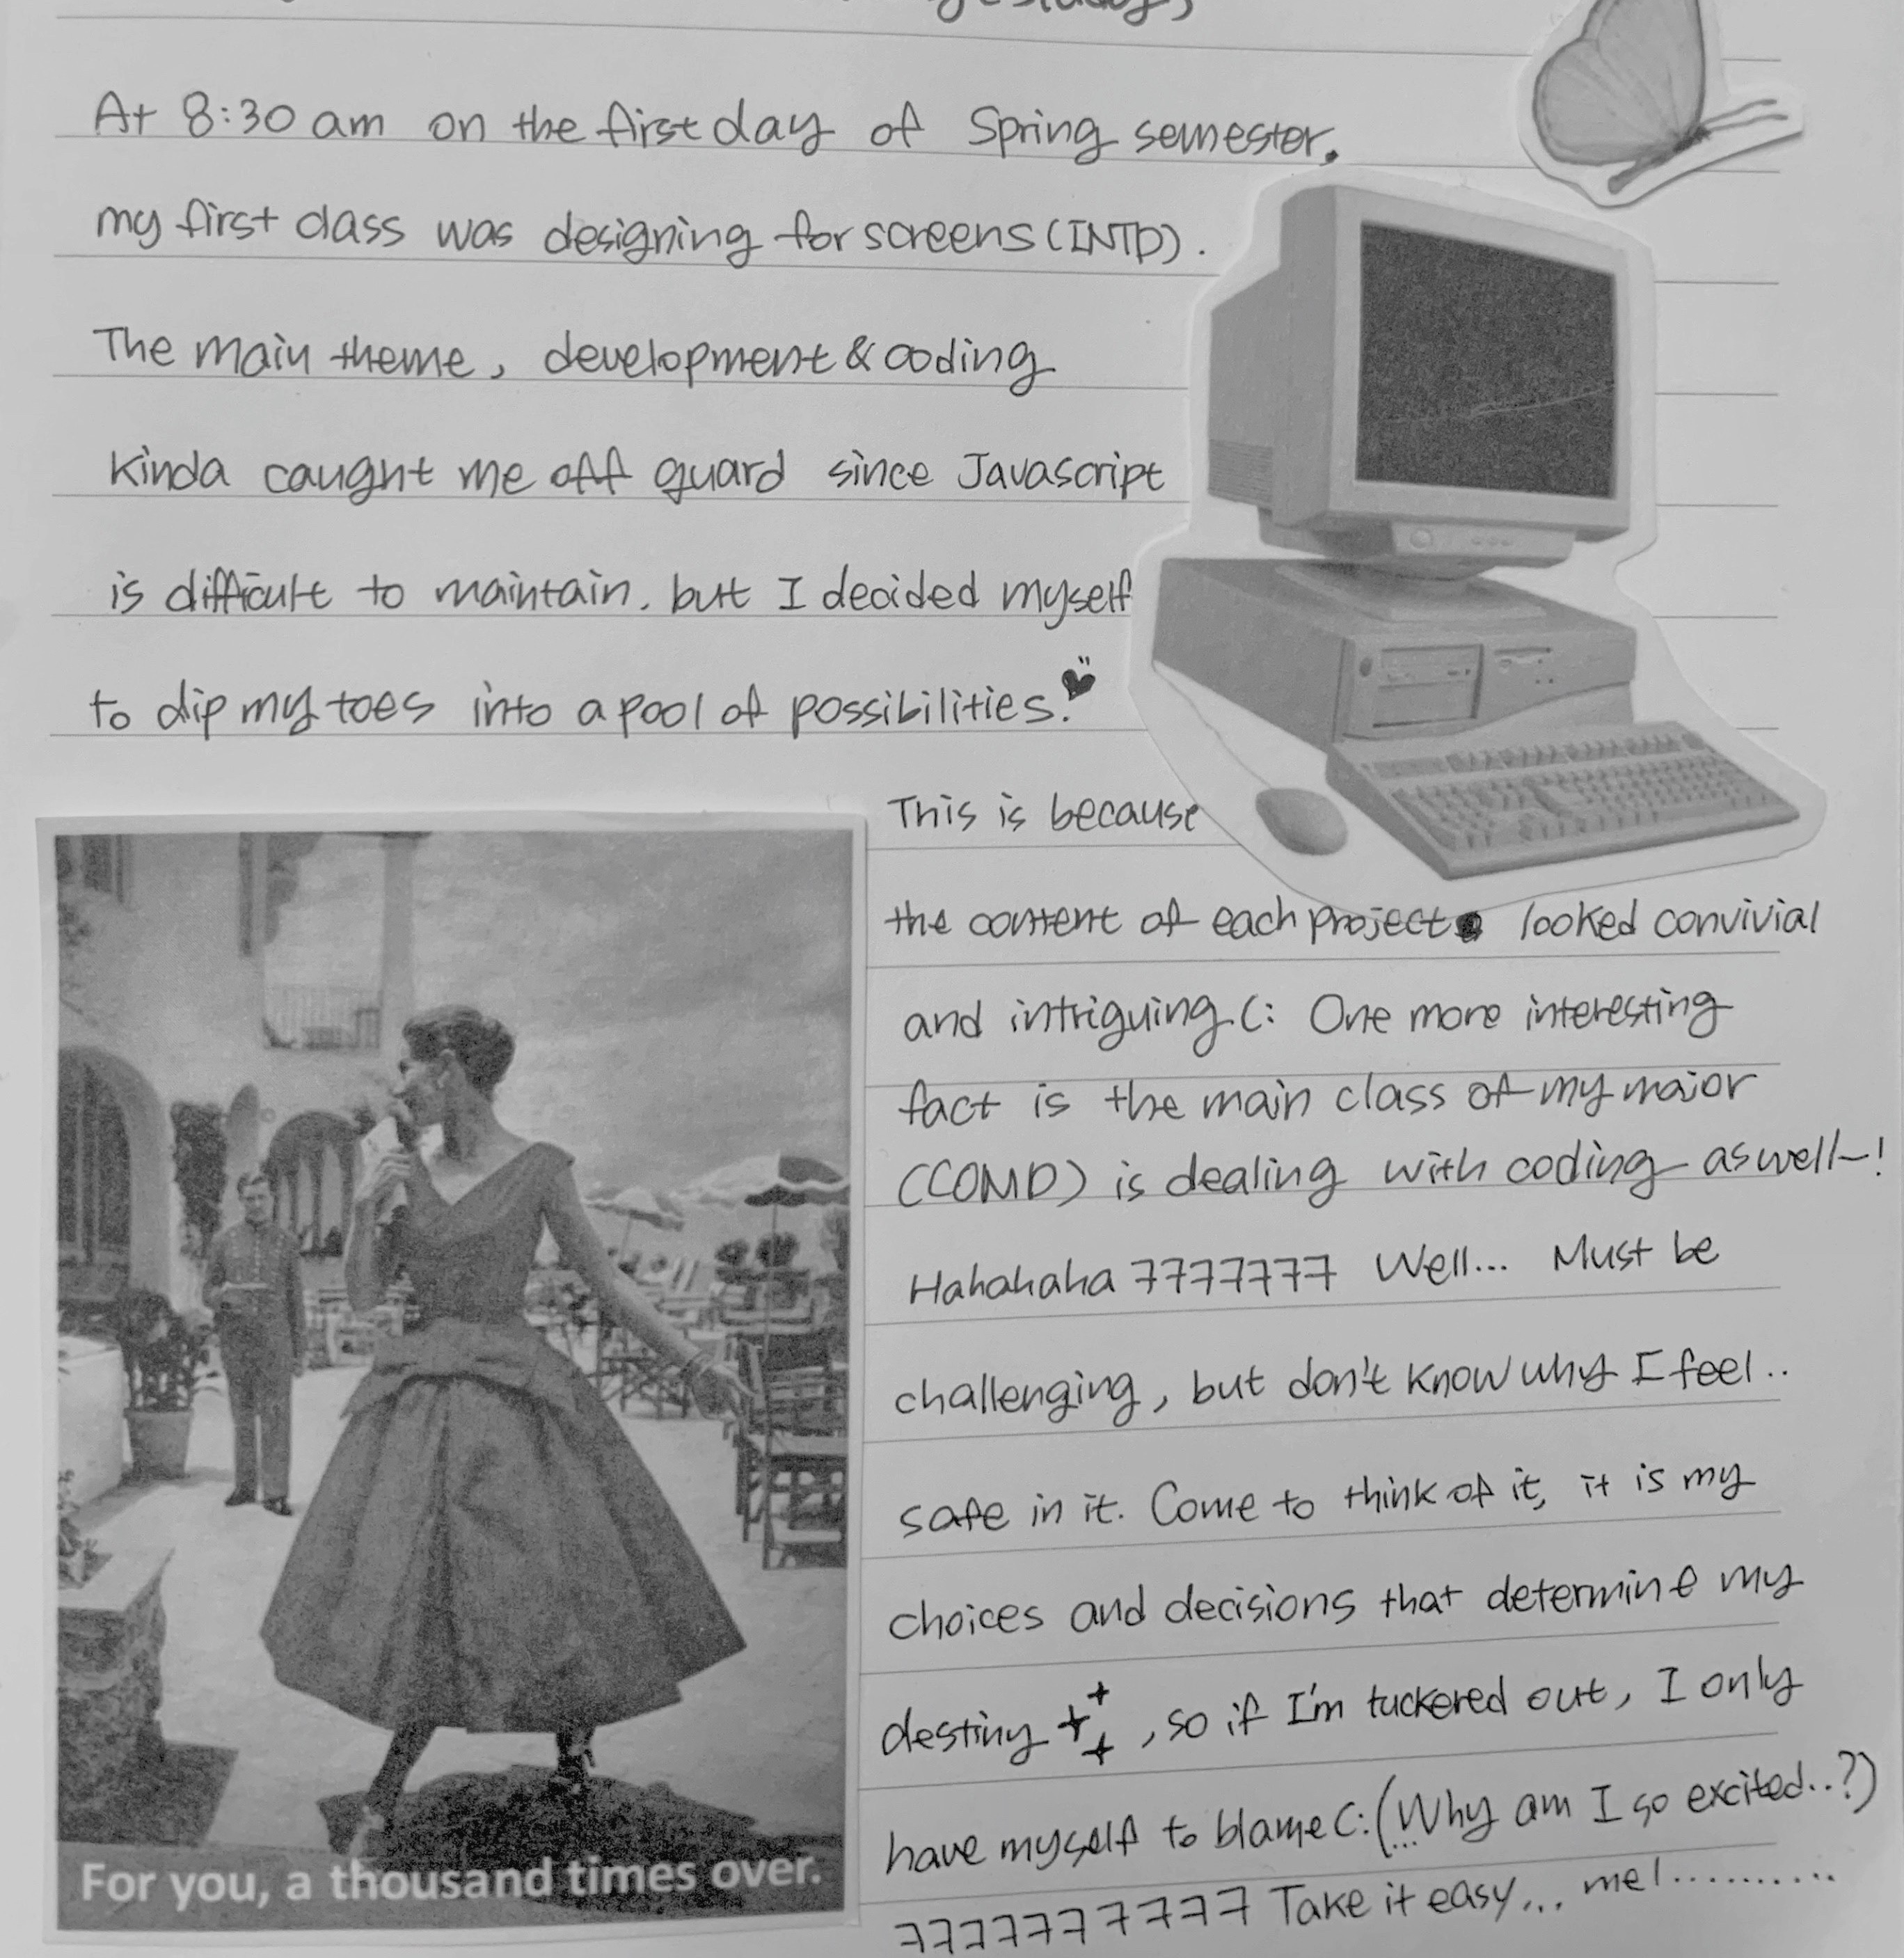 At 8:30 am on the first day of Spring semester.
my first class was designing for screens (INTD).
The main theme, development & coding
kinda caught me off guard since Javascript
is difficult to maintain. but I decided myself
to dip my toes into a pool of possibilities.♥
This is because
the content of each project looked convivial
and intriguing C: One more interesting
fact is the main class of my major
(COMD) is dealing with coding as well~!
Hahahaha ㅋㅋㅋㅋㅋㅋㅋ Well... Must be
challenging, but don't know why I feel..
safe in it. Come to think of it, it is my
choices and decisions that determine my
destiny +++, so if I'm tuckered out, I only
have myself to blame C: (...Why am I so excited..?)
ㅋㅋㅋㅋㅋㅋㅋㅋㅋㅋ Take it easy... me!...........
For you, a thousand times over.